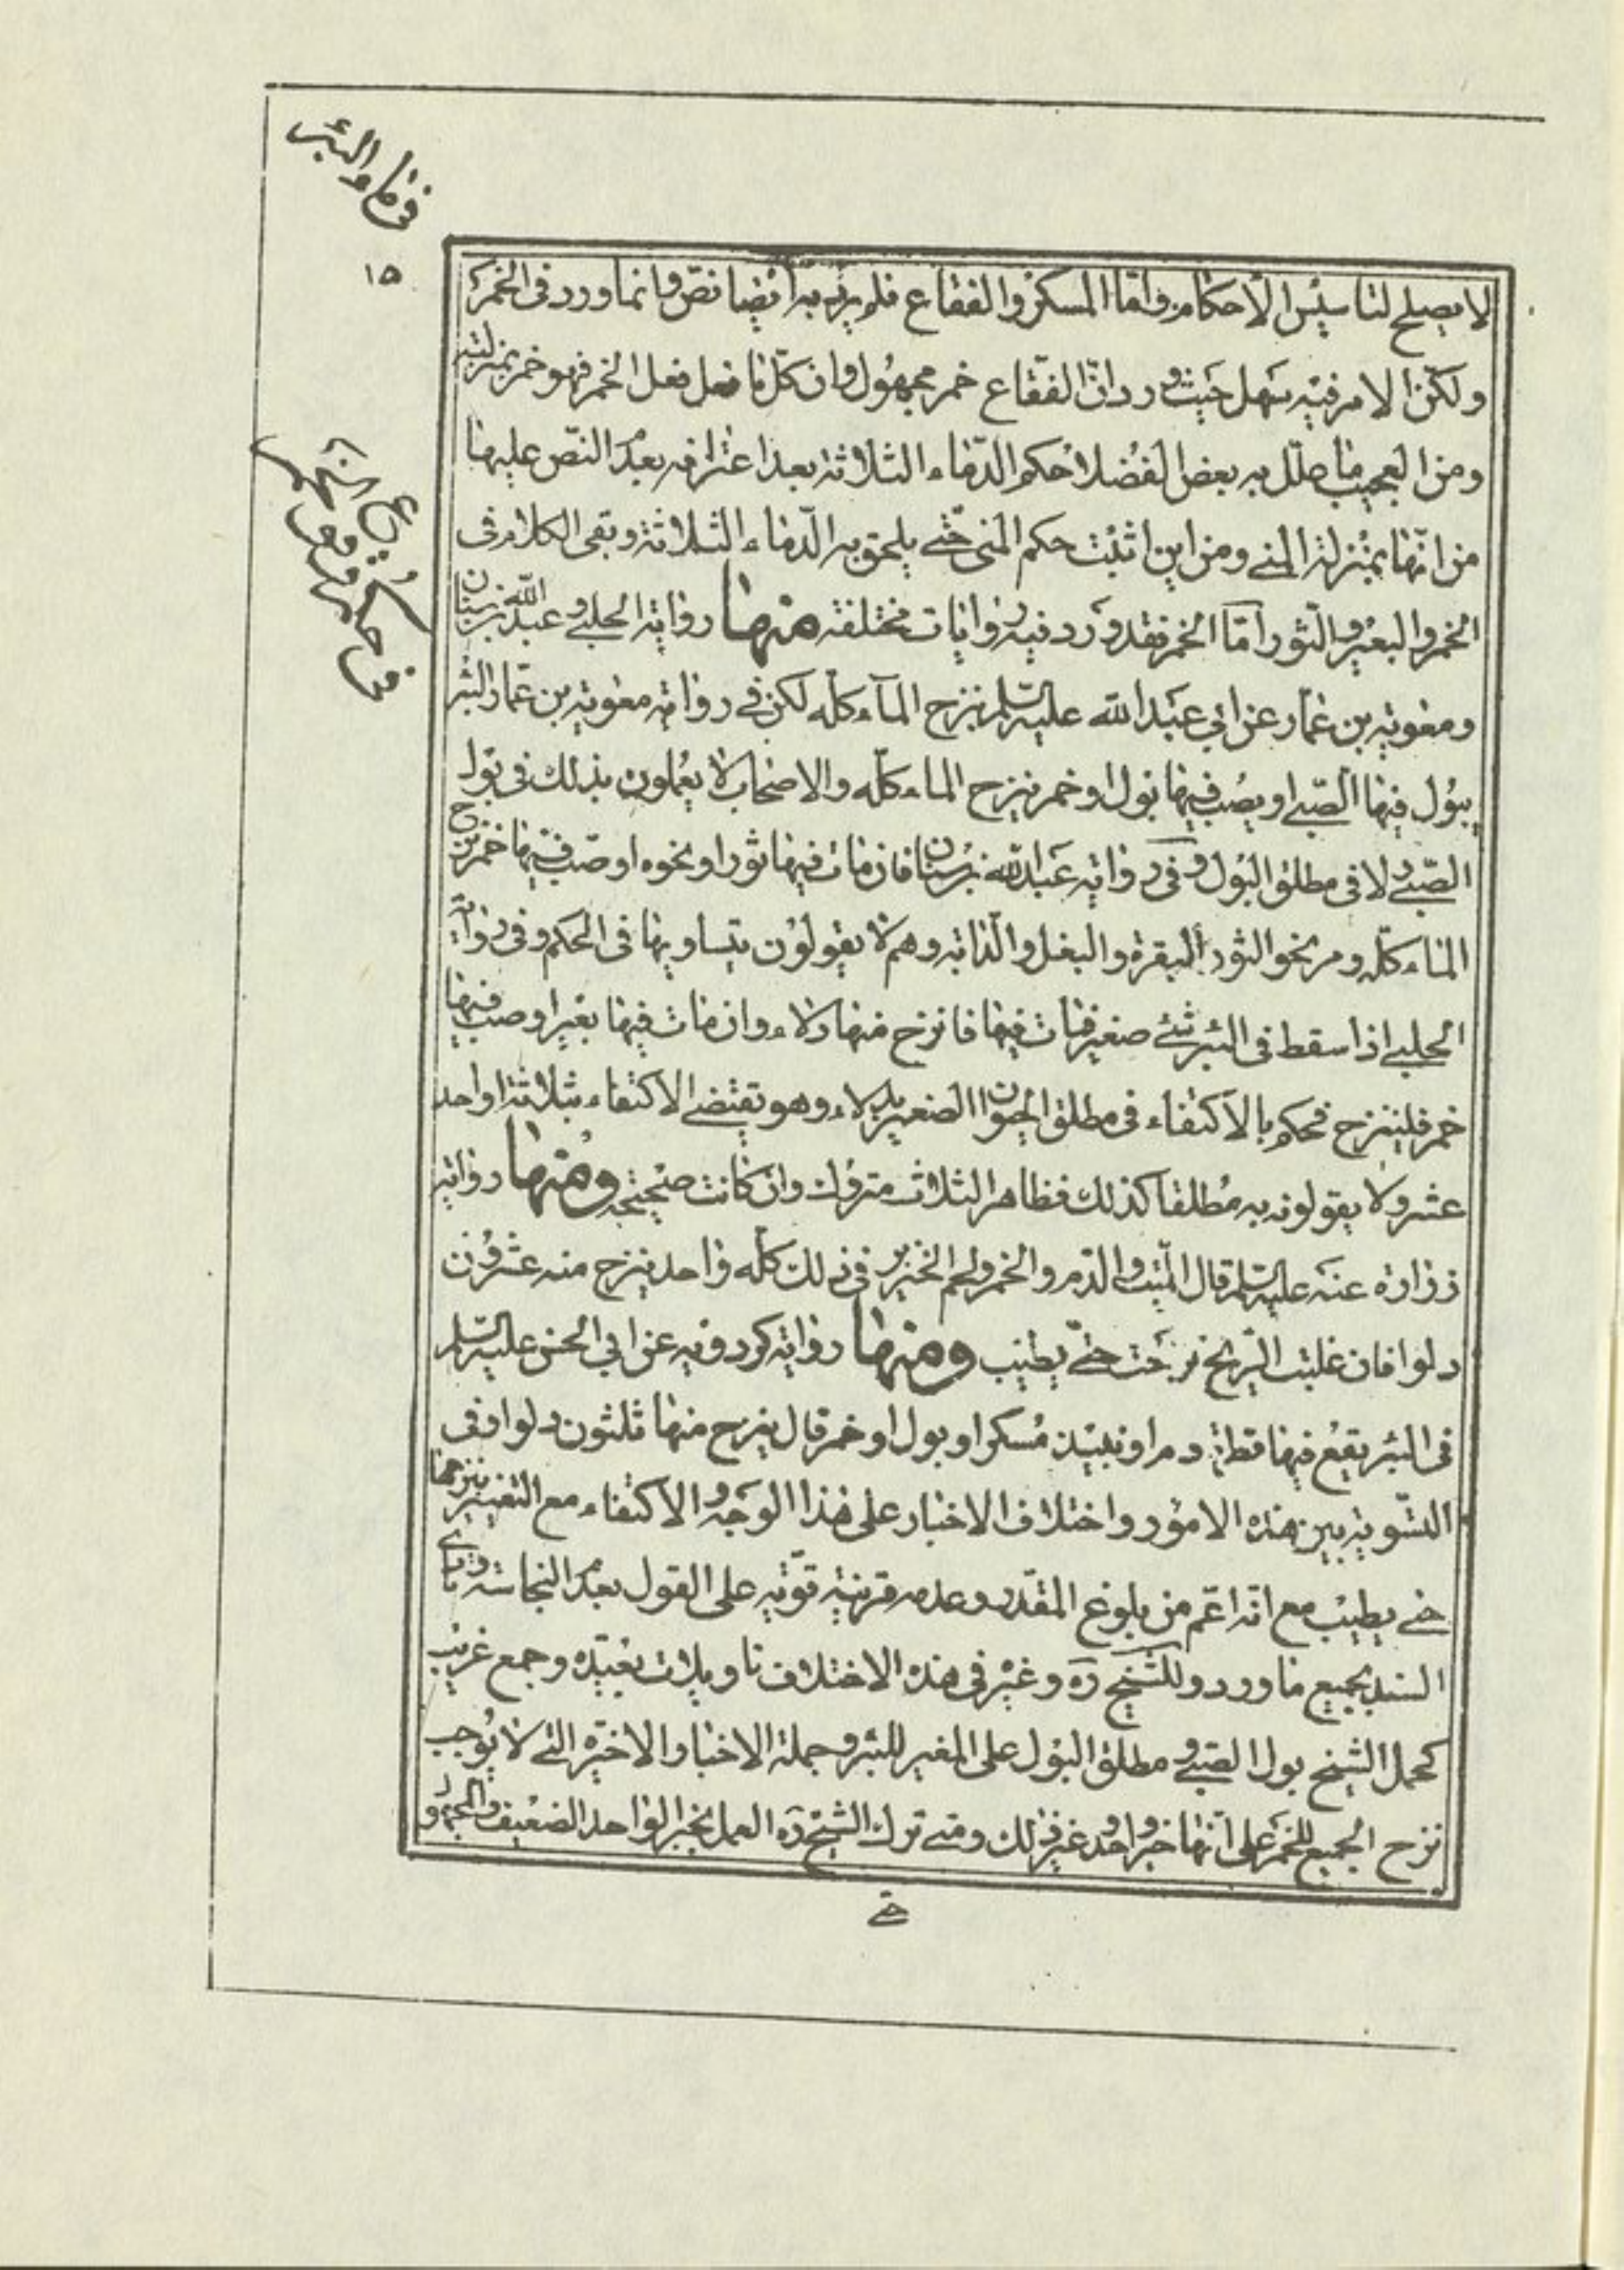 في ماء البئر
١٥
لا يصلح لتاسيس الاحكام واما المسكر والفقاع فلم يرد به ايضا نص وانما ورد فى الخمر
ولكن الامر فيه سهل حيث ورد ان الفقاع خمر مجهول وان كل ما فعل فعل الخمر فهو خمر بمنزلته
ومن العجيب ما علل به بعض الفضلا حكم الدماء الثلاثة بعد اعترافه بعدم النص عليها
من انها بمنزلة المني ومن اين اثبت حكم المنى حتى يلحق به الدماء الثلاثة وبقى الكلام فى
الخمر والبعير والثور اما الخمر فقد ورد فيه روايات مختلفه منها رواية الحلبي وعبد الله بن سنان
ومعوية بن عمار عن ابي عبد الله عليه السلم نزح الماء كله لكن فى رواية معوية بن عمار البئر
يبول فيها الصبي او يصب فيها بول او خمر ينزح الماء كله والاصحاب لا يعملون بذلك فى بول
الصبي ولا فى مطلق البول وفى رواية عبد الله بن سنان فان مات فيها ثور او نحوه او صب فيها خمر نزح
الماء كله ومر نحو الثور البقرة والبغل والدابه وهم لا يقولون بتساويها فى الحكم وفى رواية
الحلبي اذا سقط فى البئر شئ صغير فمات فيها فانزح منها دلاء وان مات فيها بعير او صب فيها
خمر فلينزح فحكم بالاكتفاء فى مطلق الحيوان الصغير بدلاء وهو يقتضي الاكتفاء بثلاثة او احد
عشر ولا يقولونه به مطلقا كذلك فظاهر الثلاث متروك وان كانت صحيحة ومنها رواية
زرارة عنه عليه السلم قال الميت والدم والخمر ولحم الخنزير فى ذلك كله واحد ينزح منه عشرون
دلوا فان غلبت الريح نزحت حتى يطيب ومنها رواية كردويه عن ابي الحسن عليه السلم
فى البئر يقع فيها قطرة دم او نبيذ مسكر او بول او خمر قال ينزح منها ثلثون دلوا وفى
التسوية بين هذه الامور واختلاف الاخبار على هذا الوجه والاكتفاء مع التغيير بنزحها
حتى يطيب مع انه اعم من بلوغ المقدر وعدمه قرينة قوية على القول بعدم النجاسة
السند بجميع ما ورد وللشيخ ره وغيره فى هذه الاختلاف تاويلات بعيدة وجمع غريب
كحمل الشيخ بول الصبي ومطلق البول على المغير للبئر وحملة الاخبار الاخيرة التي لا يوجب
نزح الجميع للخمر على انها خبر واحد وغير ذلك ومتى ترك الشيخ ره العمل بخبر الواحد الضعيف